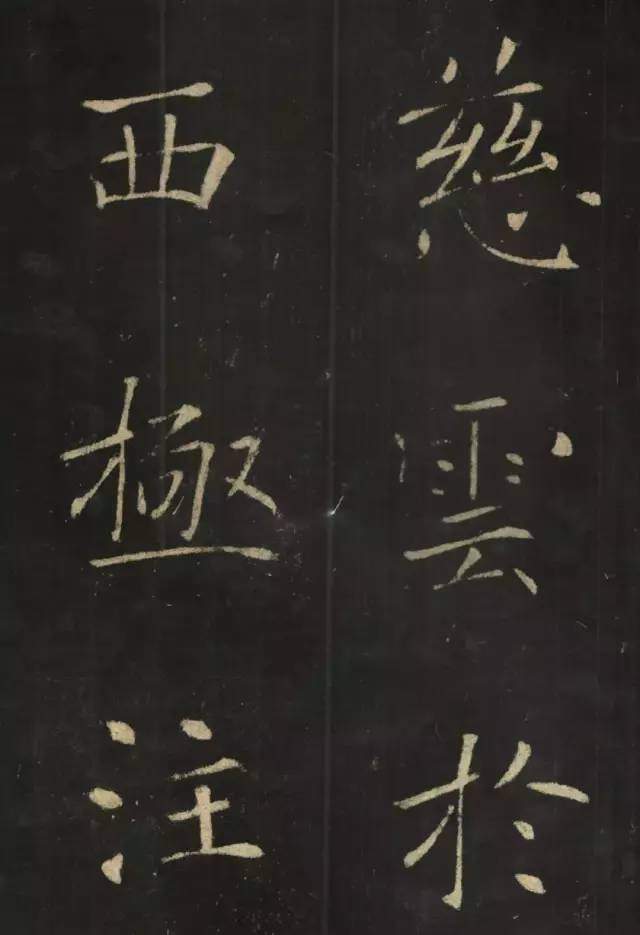 慈雲於
西極注